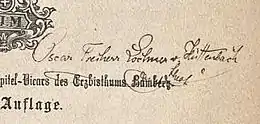 IM
Oscar Freiherr Lochner v. Hüttenbach
pitel-Vicars des Erzbisthums Bamberg
Auflage.